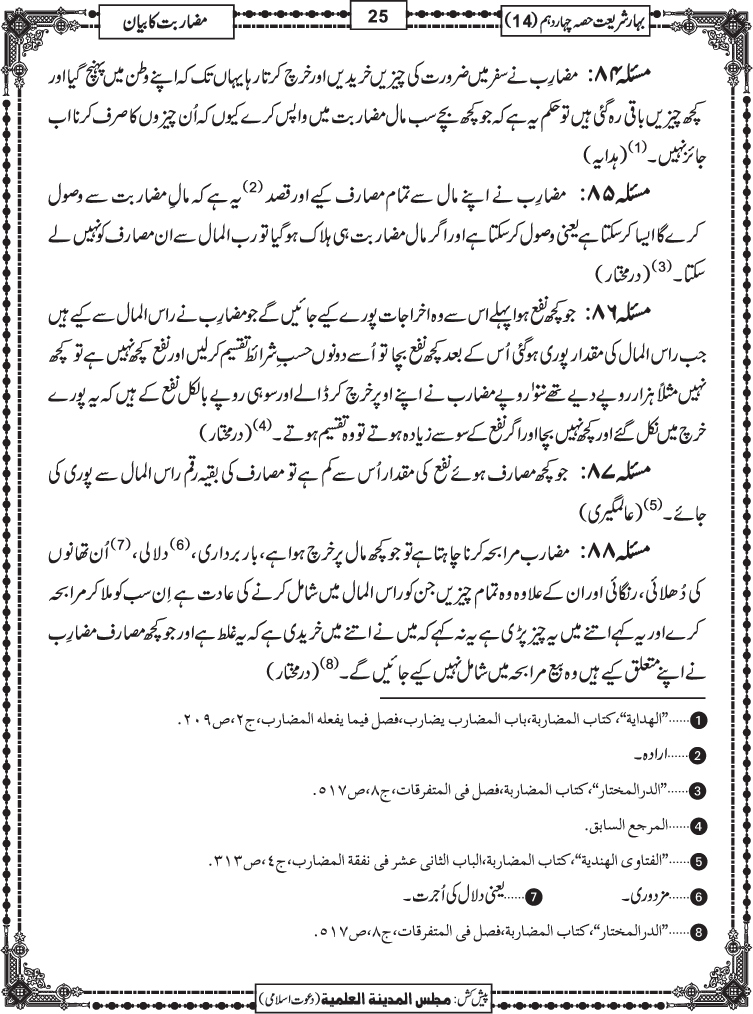 بہارشریعت حصہ چہاردہم (14)
25
مضاربت کا بیان
مسئلہ ۸۴: مضارِب نے سفر میں ضرورت کی چیزیں خریدیں اور خرچ کرتا رہا یہاں تک کہ اپنے وطن میں پہنچ گیا اور
کچھ چیزیں باقی رہ گئی ہیں تو حکم یہ ہے کہ جو کچھ بچے سب مال مضاربت میں واپس کرے کیوں کہ اُن چیزوں کا صرف کرنا اب
جائز نہیں۔(1) (ہدایہ)
مسئلہ ۸۵: مضارِب نے اپنے مال سے تمام مصارف کیے اور قصد(2) یہ ہے کہ مالِ مضاربت سے وصول
کرے گا ایسا کرسکتا ہے یعنی وصول کرسکتا ہے اور اگر مال مضاربت ہی ہلاک ہوگیا تو رب المال سے ان مصارف کو نہیں لے
سکتا۔(3) (درمختار)
مسئلہ ۸۶: جو کچھ نفع ہوا پہلے اس سے وہ اخراجات پورے کیے جائیں گے جو مضارِب نے راس المال سے کیے ہیں
جب راس المال کی مقدار پوری ہوگئی اُس کے بعد کچھ نفع بچا تو اُسے دونوں حسبِ شرائط تقسیم کرلیں اور نفع کچھ نہیں ہے تو کچھ
نہیں مثلاً ہزار روپے دیے تھے سَو روپے مضارب نے اپنے اوپر خرچ کر ڈالے اور سوہی روپے بالکل نفع کے ہیں کہ یہ پورے
خرچ میں نکل گئے اور کچھ نہیں بچا اور اگر نفع کے سو سے زیادہ ہوتے تو وہ تقسیم ہوتے۔(4) (درمختار)
مسئلہ ۸۷: جو کچھ مصارف ہوئے نفع کی مقدار اُس سے کم ہے تو مصارف کی بقیہ رقم راس المال سے پوری کی
جائے۔(5) (عالمگیری)
مسئلہ ۸۸: مضارب مرابحہ کرنا چاہتا ہے تو جو کچھ مال پر خرچ ہوا ہے، بار برداری،(6) دلالی،(7) اُن تھانوں
کی دُھلائی، رنگائی اور ان کے علاوہ وہ تمام چیزیں جن کو راس المال میں شامل کرنے کی عادت ہے اِن سب کو ملا کر مرابحہ
کرے اور یہ کہے اتنے میں یہ چیز پڑی ہے یہ نہ کہے کہ میں نے اتنے میں خریدی ہے کہ یہ غلط ہے اور جو کچھ مصارف مضارِب
نے اپنے متعلق کیے ہیں وہ بیع مرابحہ میں شامل نہیں کیے جائیں گے۔(8) (درمختار)
1......"الهداية"، كتاب المضاربة، باب المضارب يضارب، فصل فيما يفعله المضارب، ج٢، ص٢٠٩.
2......ارادہ۔
3......"الدرالمختار"، كتاب المضاربة، فصل فى المتفرقات، ج٨، ص٥١٧.
4......المرجع السابق.
5......"الفتاوى الهندية"، كتاب المضاربة، الباب الثانى عشر فى نفقة المضارب، ج٤، ص٣١٣.
6......مزدوری۔ 7......یعنی دلال کی اُجرت۔
8......"الدرالمختار"، كتاب المضاربة، فصل فى المتفرقات، ج٨، ص٥١٧.
پیش کش: مجلس المدينة العلمية (دعوت اسلامی)